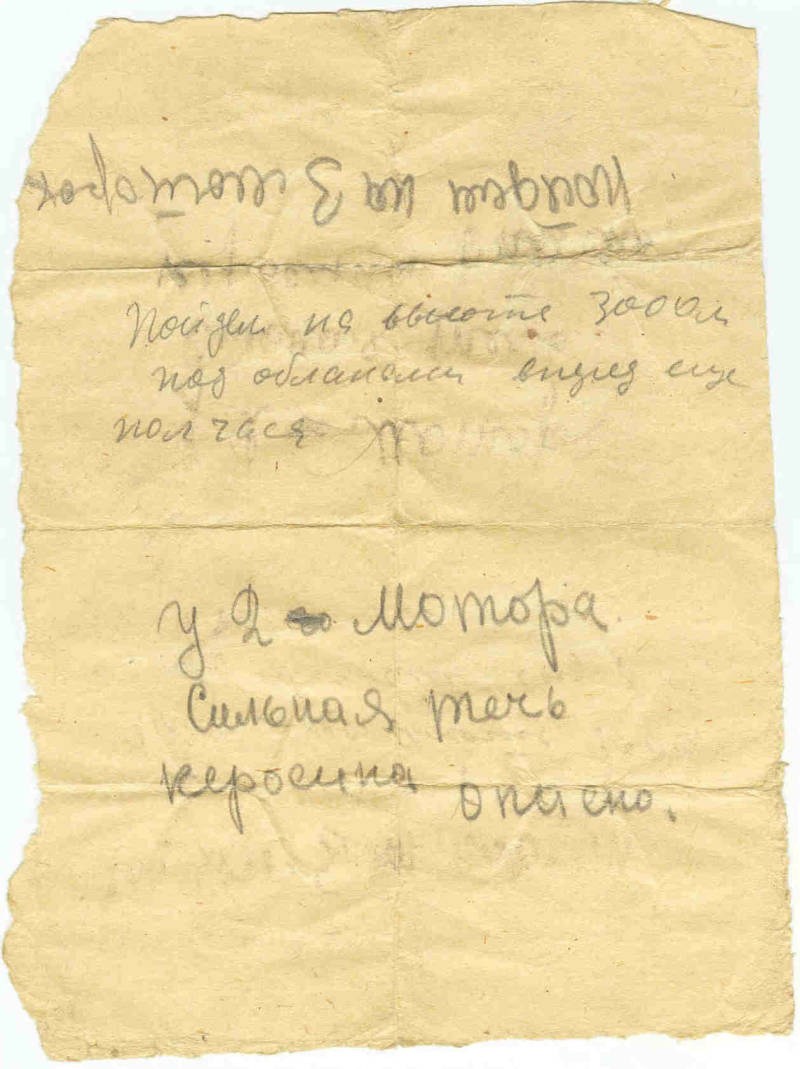 Пойдем на 3 моторах
Пойдем на высоте 3000 м
под облаками вперед еще
пол часа
У 2го Мотора
Сильная течь
керосина опасно.